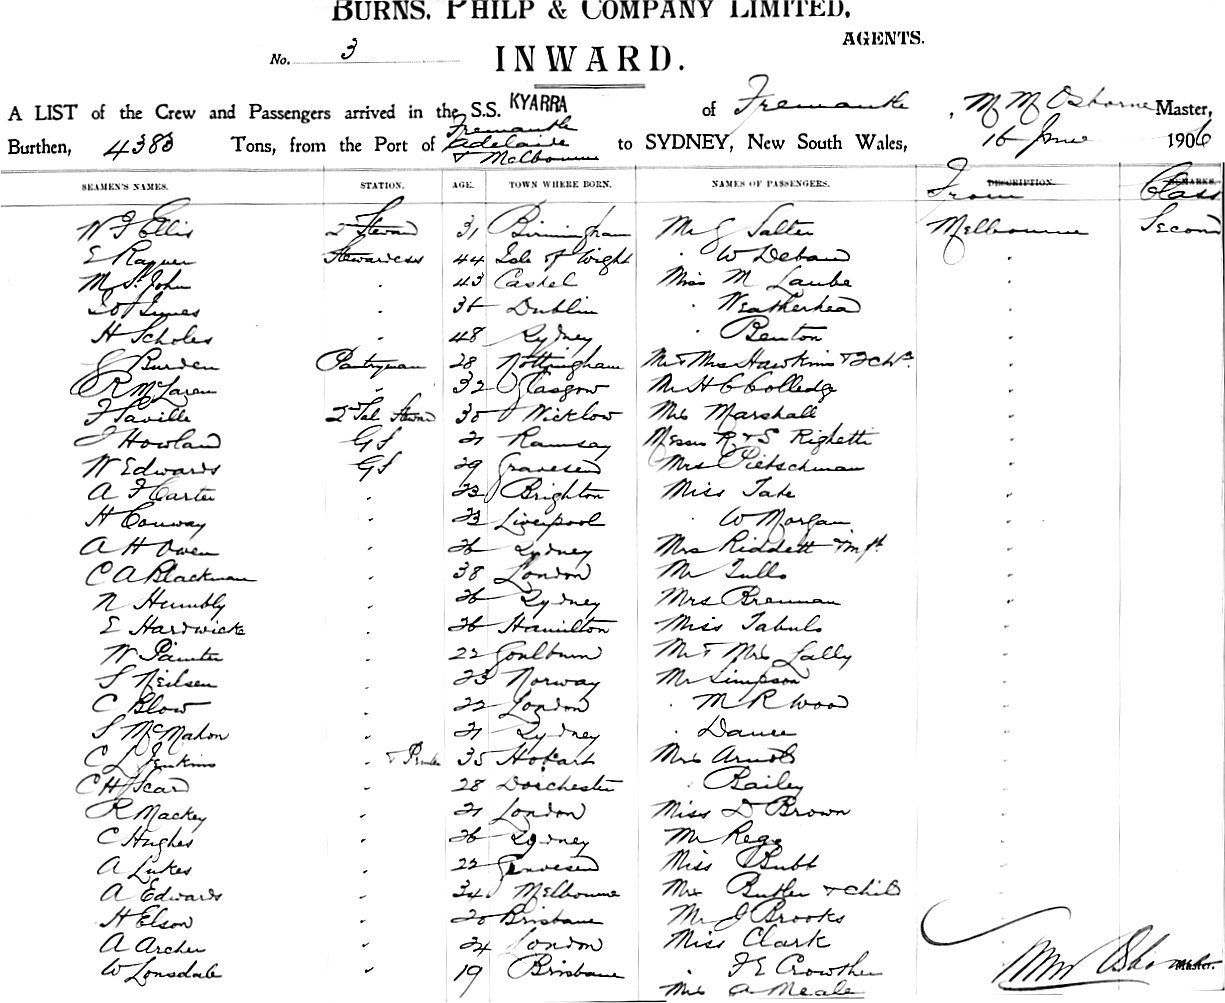 BURNS, PHILP & COMPANY LIMITED,
AGENTS.
No. 3
INWARD.
A LIST of the Crew and Passengers arrived in the S.S. KYARRA of Fremantle, Master,
Fremantle
Burthen, 4383 Tons, from the Port of Adelaide to SYDNEY, New South Wales, 16 June 1906
& Melbourne
SEAMEN'S NAMES. STATION. AGE. TOWN WHERE BORN. NAMES OF PASSENGERS. DESCRIPTION. From REMARKS. Class
W F Ellis 2nd Steward 31 Birmingham Mr G Salter Melbourne Second
E Rayner Stewardess 44 Isle of Wight " W Deband "
M St John " 43 Cashel Miss M Laube "
Innes " 36 Dublin " Weatherhead "
H Scholes " 48 Sydney " Benton "
G Burden Pantryman 28 Nottingham Mr & Mrs Hawkins & 3 chn "
R McLaren " 32 Glasgow Mr H C Colledge "
F Saville 2nd Sal Steward 30 Wicklow Mrs Marshall "
J Howland G S 21 Ramsay Messrs R & S Righetti "
W Edwards G S 29 Gravesend Mrs Pietschman "
A F Carter " 23 Brighton Miss Tate "
H Conway " 23 Liverpool " W Morgan "
A H Owen " 26 Sydney Mrs Riddett & inft "
C A Blackman " 38 London Mr Tulls "
N Humbly " 26 Sydney Mrs Brennan "
E Hardwicke " 26 Hamilton Miss Tabuls "
W Painter " 22 Goulburn Mr & Mrs Lally "
S Neilsen " 23 Norway Mr Simpson "
C Blow " 22 London " M R Wood "
S McMahon " 21 Sydney " Dance "
C L Jenkins " & Printer 35 Hobart Mrs Arnold "
C H Scard " 28 Dorchester " Bailey "
R Mackey " 21 London Miss D Brown "
C Hughes " 26 Sydney Mr Regg "
A Lukes " 22 Gravesend Miss Bubb "
A Edwards " 34 Melbourne Mrs Butler & child "
H Elson " 20 Brisbane Mr J Brooks "
A Archer " 24 London Miss Clark
W Lonsdale " 19 Brisbane " F E Crowther Master.
Mrs A Meale